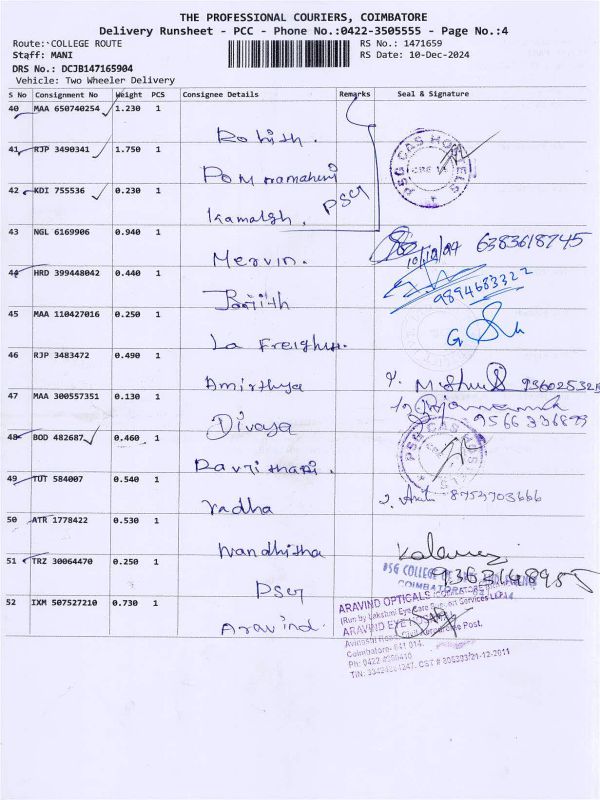 THE PROFESSIONAL COURIERS, COIMBATORE
Delivery Runsheet - PCC - Phone No.:0422-3505555 - Page No.:4
Route: COLLEGE ROUTE RS No.: 1471659
Staff: MANI RS Date: 10-Dec-2024
DRS No.: DCJB147165904
Vehicle: Two Wheeler Delivery
S No Consignment No Weight PCS Consignee Details Remarks Seal & Signature
40 MAA 650740254 1.230 1
Rohith.
41 RJP 3490341 1.750 1
PSG CAS HOSTELS
42 KDI 755536 0.230 1
PSG
Kamalesh.
43 NGL 6169906 0.940 1
Mervin. 10/12/24 6383618745
44 HRD 399448042 0.440 1
9894683322
45 MAA 110427016 0.250 1
La Freighn.
46 RJP 3483472 0.490 1
Amirthya
47 MAA 300557351 0.130 1
Divaya 9566336899
48 BOD 482687 0.460 1
PSG CAS HOSTELS
49 TUT 584007 0.540 1
Vadha 8754703666
50 ATR 1778422 0.530 1
Nandhitha
51 TRZ 30064470 0.250 1
PSG COLLEGE OF
9363148955
COIMBATORE
PSG
52 IXM 507527210 0.730 1
Aravind.
ARAVIND OPTICALS
(Run by Lakshmi Eye Care Services
ARAVIND EYE HOSPITAL
Avinashi Road, Civil Aerodrome Post,
Coimbatore- 641 014.